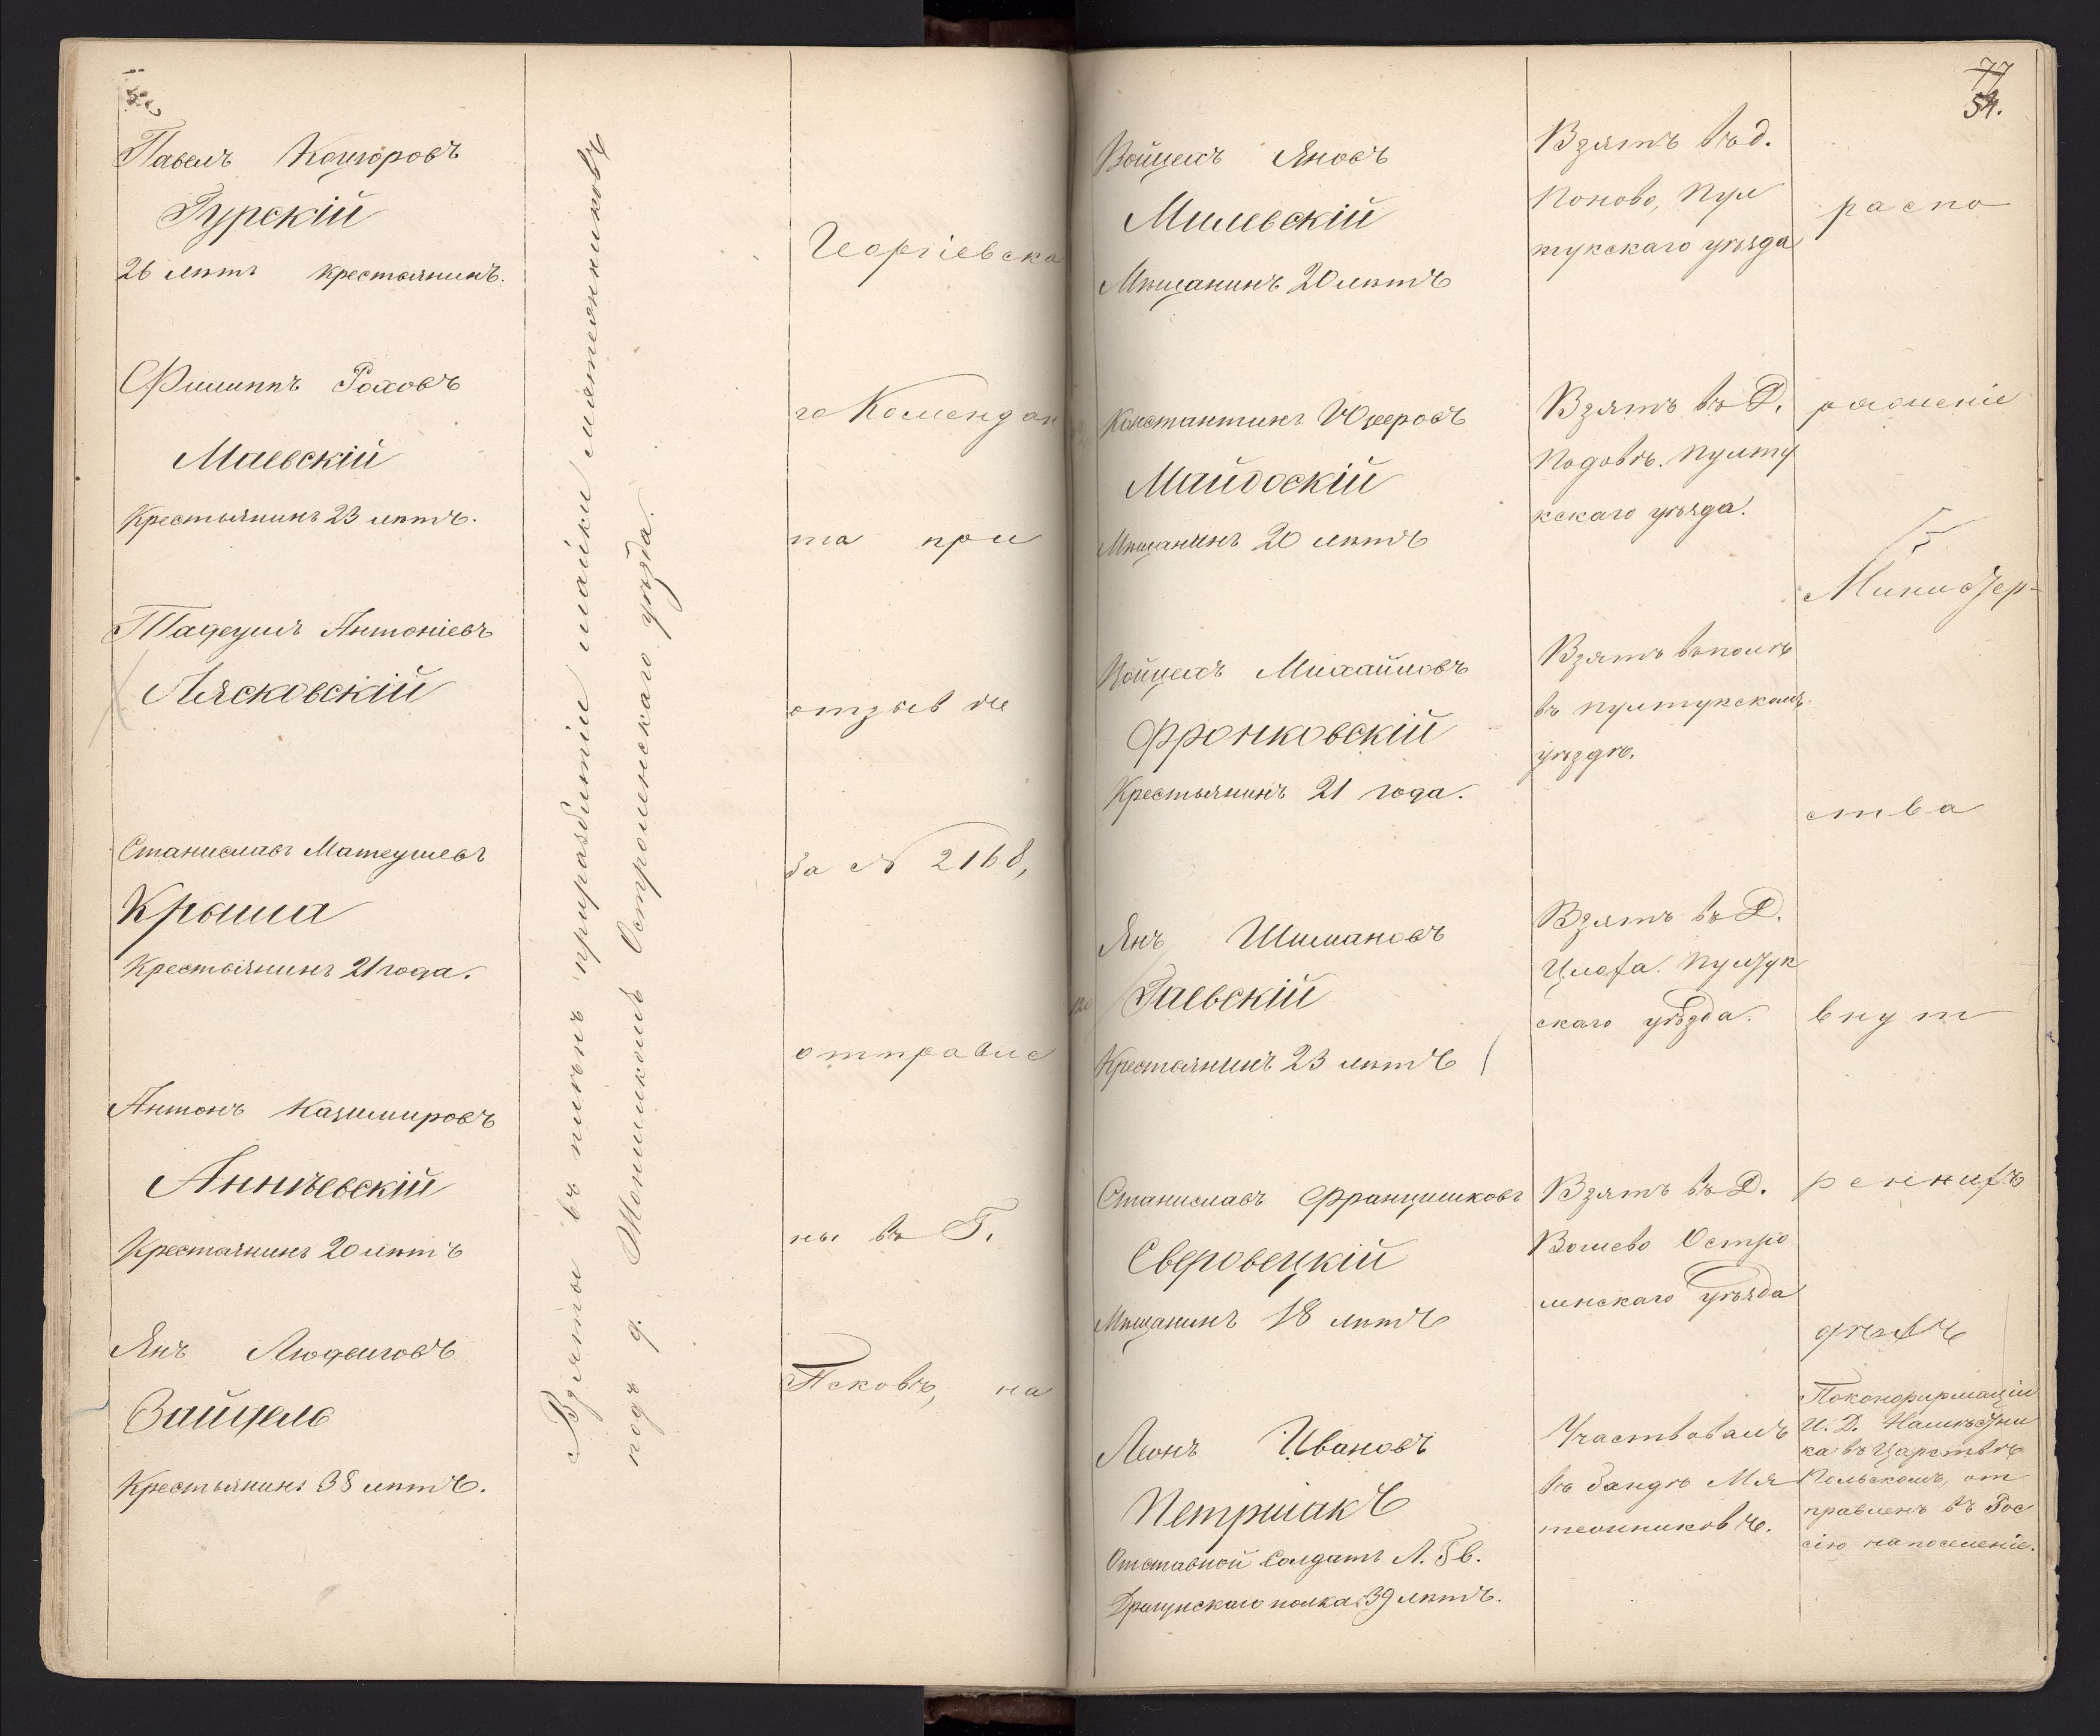 Павелъ Кацпровъ
Гурскій
26 лѣтъ крестьянинъ.
Филиппъ Роховъ
Маевскій
Крестьянинъ 23 лѣтъ.
Тадеушъ Антоніевъ
Лясковскій
Станиславъ Матеушевъ
Крыша
Крестьянинъ 21 года.
Антонъ Казимировъ
Аннѣевскій
Крестьянинъ 20 лѣтъ
Янъ Людвиговъ
Зайдель
Крестьянинъ 38 лѣтъ.
Взяты въ плѣнъ при разбитіи шайки мятежниковъ
подъ д. Остроленскаго уѣзда.
Георгіевска
го Комендан
та при
отзывѣ
за № 2168,
отправле
ны въ Г.
Псковъ, на
77
54.
Войцехъ Яновъ
Милевскій
Мѣщанинъ 20 лѣтъ
Константинъ Юзеровъ
Майдоскій
Мѣщанинъ 20 лѣтъ
Войцехъ Михайловъ
Фронковскій
Крестьянинъ 21 года.
Янъ Шимановъ
Гаевскій
Крестьянинъ 23 лѣтъ
Станиславъ Францишковъ
Сверовецкій
Мѣщанинъ 18 лѣтъ
Леонъ Ивановъ
Петршакъ
Отставной Солдатъ Л. Гв.
Драгунскаго полка 39 лѣтъ.
Взятъ въ д.
Поново, Пул
тукскаго уѣзда
Взятъ въ Д.
Подовъ. Пулту
кскаго уѣзда.
Взятъ въ полѣ
въ пултукскомъ
уѣздѣ.
Взятъ въ Д.
Пултук
скаго уѣзда.
Взятъ въ Д.
Волево Остро
ленскаго уѣзда
Участвовалъ
въ бандѣ Мя
тежниковъ.
распо
ряженіе
Министер-
ства
внут
реннихъ
дѣлъ
По конфирмаціи
И. Д. Намѣстни
ка въ Царствѣ
Польскомъ, от
правленъ въ Рос
сію на поселеніе.